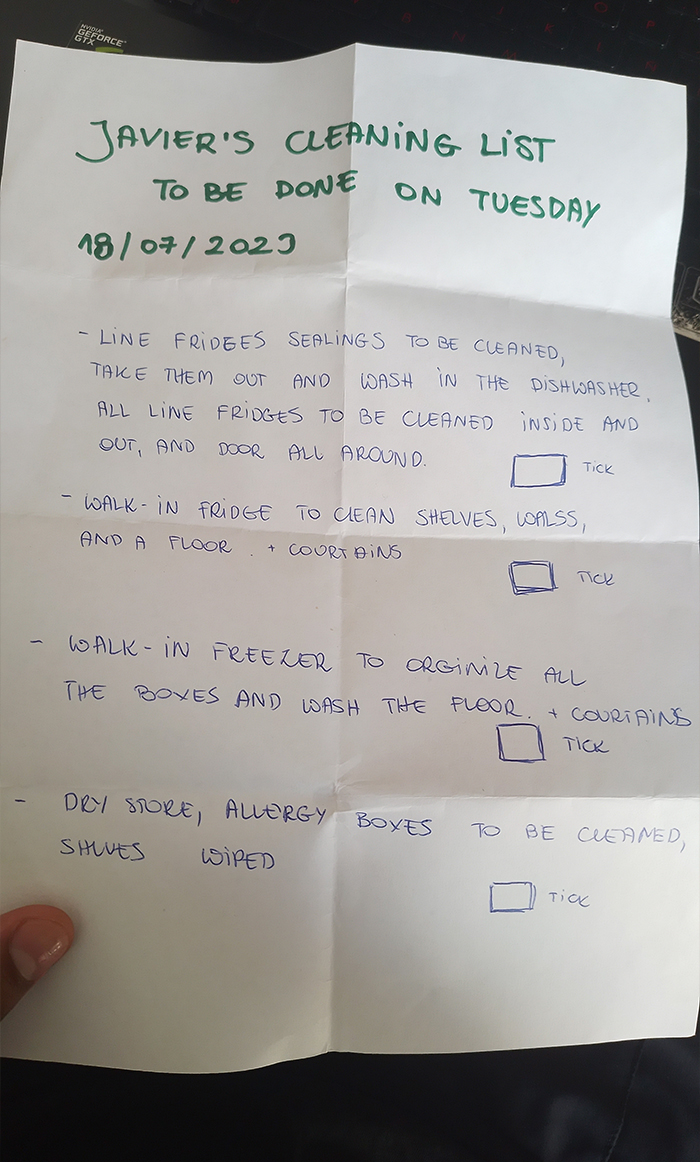 NVIDIA
GEFORCE
GTX
JAVIER'S CLEANING LIST
TO BE DONE ON TUESDAY
18/07/2023
- LINE FRIDEES SEALINGS TO BE CLEANED,
TAKE THEM OUT AND WASH IN THE DISHWASHER.
ALL LINE FRIDGES TO BE CLEANED INSIDE AND
OUT, AND DOOR ALL AROUND.
TICK
- WALK-IN FRIDGE TO CLEAN SHELVES, WALSS,
AND A FLOOR. + COURTAINS
TICK
- WALK-IN FREEZER TO ORGINIZE ALL
THE BOXES AND WASH THE FLOOR. + COURTAINS
TICK
- DRY STORE, ALLERGY BOXES TO BE CLEANED,
SHLVES WIPED
TICK